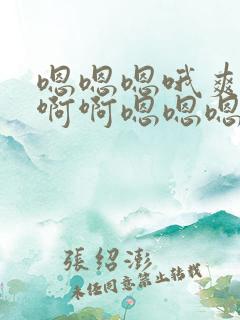 嗯嗯嗯哦爽
啊啊嗯嗯嗯
張紹澎
未经同意禁止转载